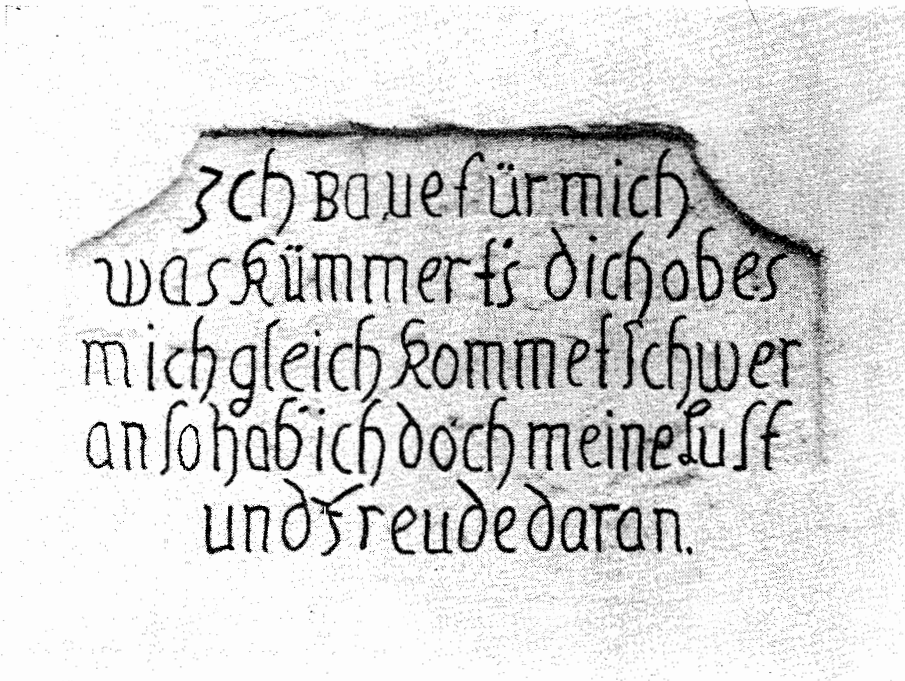 Ich baue für mich
was kümmert's dich ob es
mich gleich kommet schwer
an so hab' ich doch meine Lust
und Freude daran.